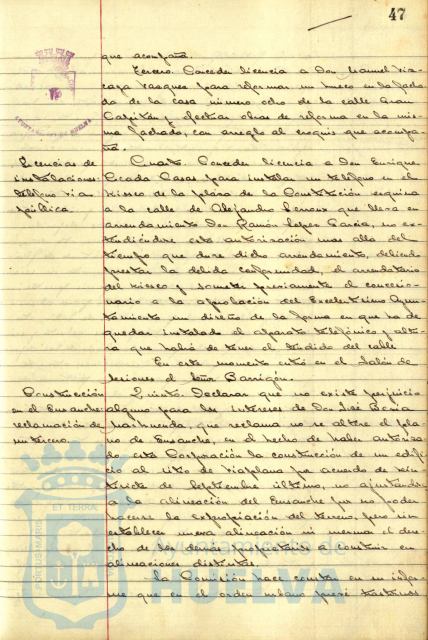 47
que acompaña.
Tercero. Conceder licencia a Don Manuel Viz-
caya Vazquez para reformar un hueco en la facha-
da de la casa número ocho de la calle Gran
Capitán y efectuar obras de reforma en la mis-
ma fachada, con arreglo al croquis que acompa-
ña.
Licencias de
instalaciones
teléfono via
pública.
Cuarto. Conceder licencia a Don Enrique
Casas para instalar un teléfono en el
Kiosco de la plaza de la Constitución esquina
a la calle de Alejandro Lerroux que lleva en
arrendamiento Don Ramón López García, no ex-
tendiéndose esta autorización mas allá del
tiempo que dure dicho arrendamiento, debiendo
prestar la debida conformidad, el arrendatario
del Kiosco y someter previamente el concesio-
nario a la aprobación del Excelentísimo Ayun-
tamiento un diseño de la forma en que ha de
quedar instalado el aparato telefónico y altu-
ra que habrá de tener el tendido del cable
En este momento entró en el Salón de
Sesiones el Señor Barrigón.
Construcción
en el Ensanche
reclamación de
un tercero.
Quinto. Declarar que no existe perjuicio
alguno para los intereses de Don José
que reclama no se altere el pla-
no de Ensanche, en el hecho de haber autoriza-
do esta Corporación la construcción de un edifi-
cio al sitio de Viaplana por acuerdo de vein-
tisiete de Septiembre último, no ajustándose
a la alineación del Ensanche por no poder
hacerse la expropiación del terreno, pero sin
establecer nueva alineación ni merma el dere-
cho de los demas propietarios a construir en
alineaciones distintas.
La Comisión hace constar en su infor-
me que en el orden urbano
ET TERRA
Ayuntamiento de
HUELVA